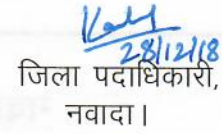 28/12/18
जिला पदाधिकारी,
नवादा।